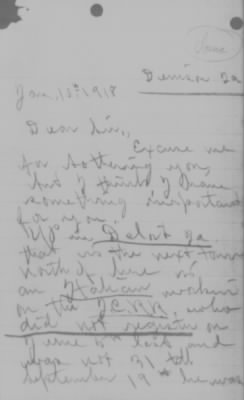 Denison Ia
Jan, 15th 1918
Dear Sir,,
Excuse me
for bothering you,
but I think I have
something important
for you.
Up in Deloit Ia
that is the next town
north of here is
an Italian working
on the I.C.R.R. who
did not register on
June 5th last and
was not 31 till
September 19th he was